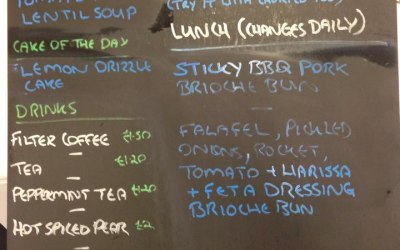 TOMATO
LENTIL SOUP
CAKE OF THE DAY
LEMON DRIZZLE
CAKE
DRINKS
FILTER COFFEE £1.50
TEA £1.20
PEPPERMINT TEA £1.20
HOT SPICED PEAR £2
(TRY IT WITH
LUNCH (CHANGES DAILY)
STICKY BBQ PORK
BRIOCHE BUN
FALAFEL, PICKLED
ONIONS, ROCKET,
TOMATO + HARISSA
+ FETA DRESSING
BRIOCHE BUN